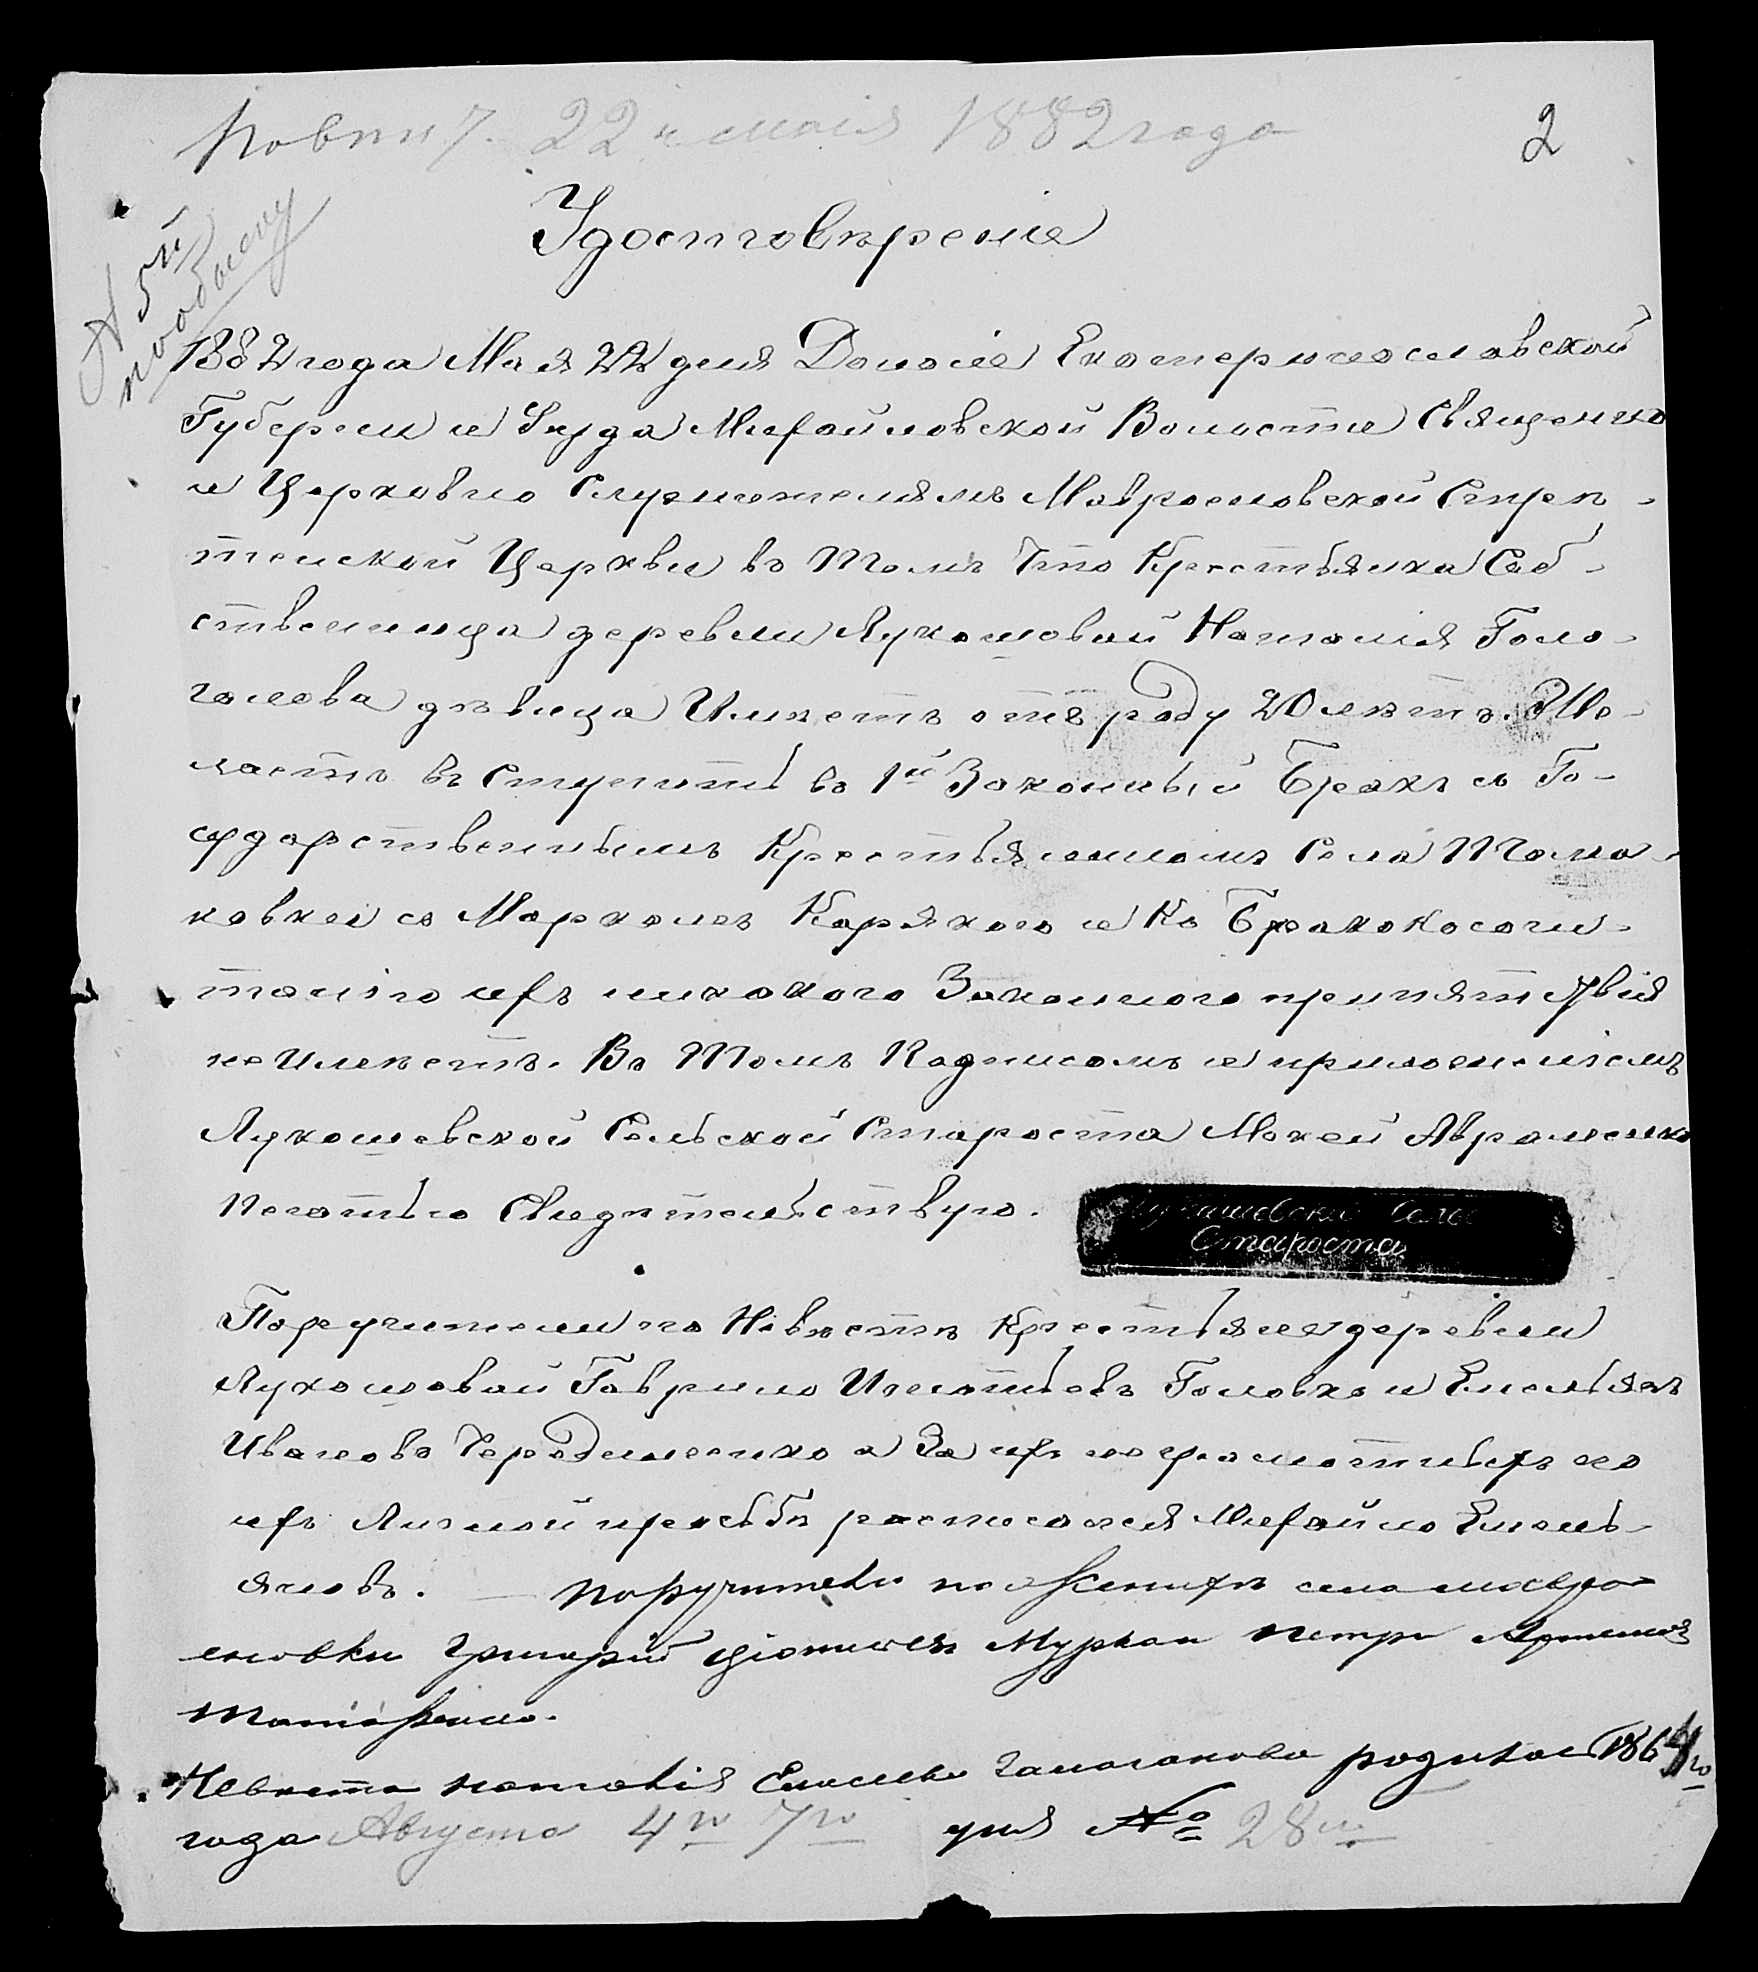 Повин 7. 22 мaiя 1882 года
2
№ 5й
по обыску
Удостовѣреніе
1882 года Мая 22 дня Доноie Екатеринославской
Губернии и Уѣзда Михайловской Волости Священно
и Церковно Служителямъ Маѵроеновской Стреѣ-
тенской Церкви въ Томъ Что Крестьянка Соб-
ственница деревни Лукашовай Наталія Голо-
ганова дѣвица Имѣетъ отъ роду 20 лѣтъ. Же-
лаетъ въ Ступить въ 1й Законный Бракъ съ Го-
сударственнымъ Крестьяниномъ Села Тома-
ковки со Маркомъ Карякою и Ко Бракокосочи-
танію ихъ никакого Законного препятствія
не Имѣетъ. Въ Томъ Подписомъ и приложеніемъ
Лукашевской Сельской Староста Мокей Авраменко
Печатью Свидѣтельствую.
Лукашевски Сельс
Староста
Поручители по Невѣстѣ Крестьяне деревни
Лукашовай Гаврило Игнатьевъ Головко и Емельянъ
Ивановъ Чередниченко а За ихъ неграмотныхъ по
ихъ Личной просьбѣ росписался Михайло Емель-
яновъ. — поручители по Женихѣ села мавро-
еновки Григорій Муркаи петръ Артемов

Невѣста наталія Гологанова родилас 1864го
года Августа 4го 7го дня № 28й